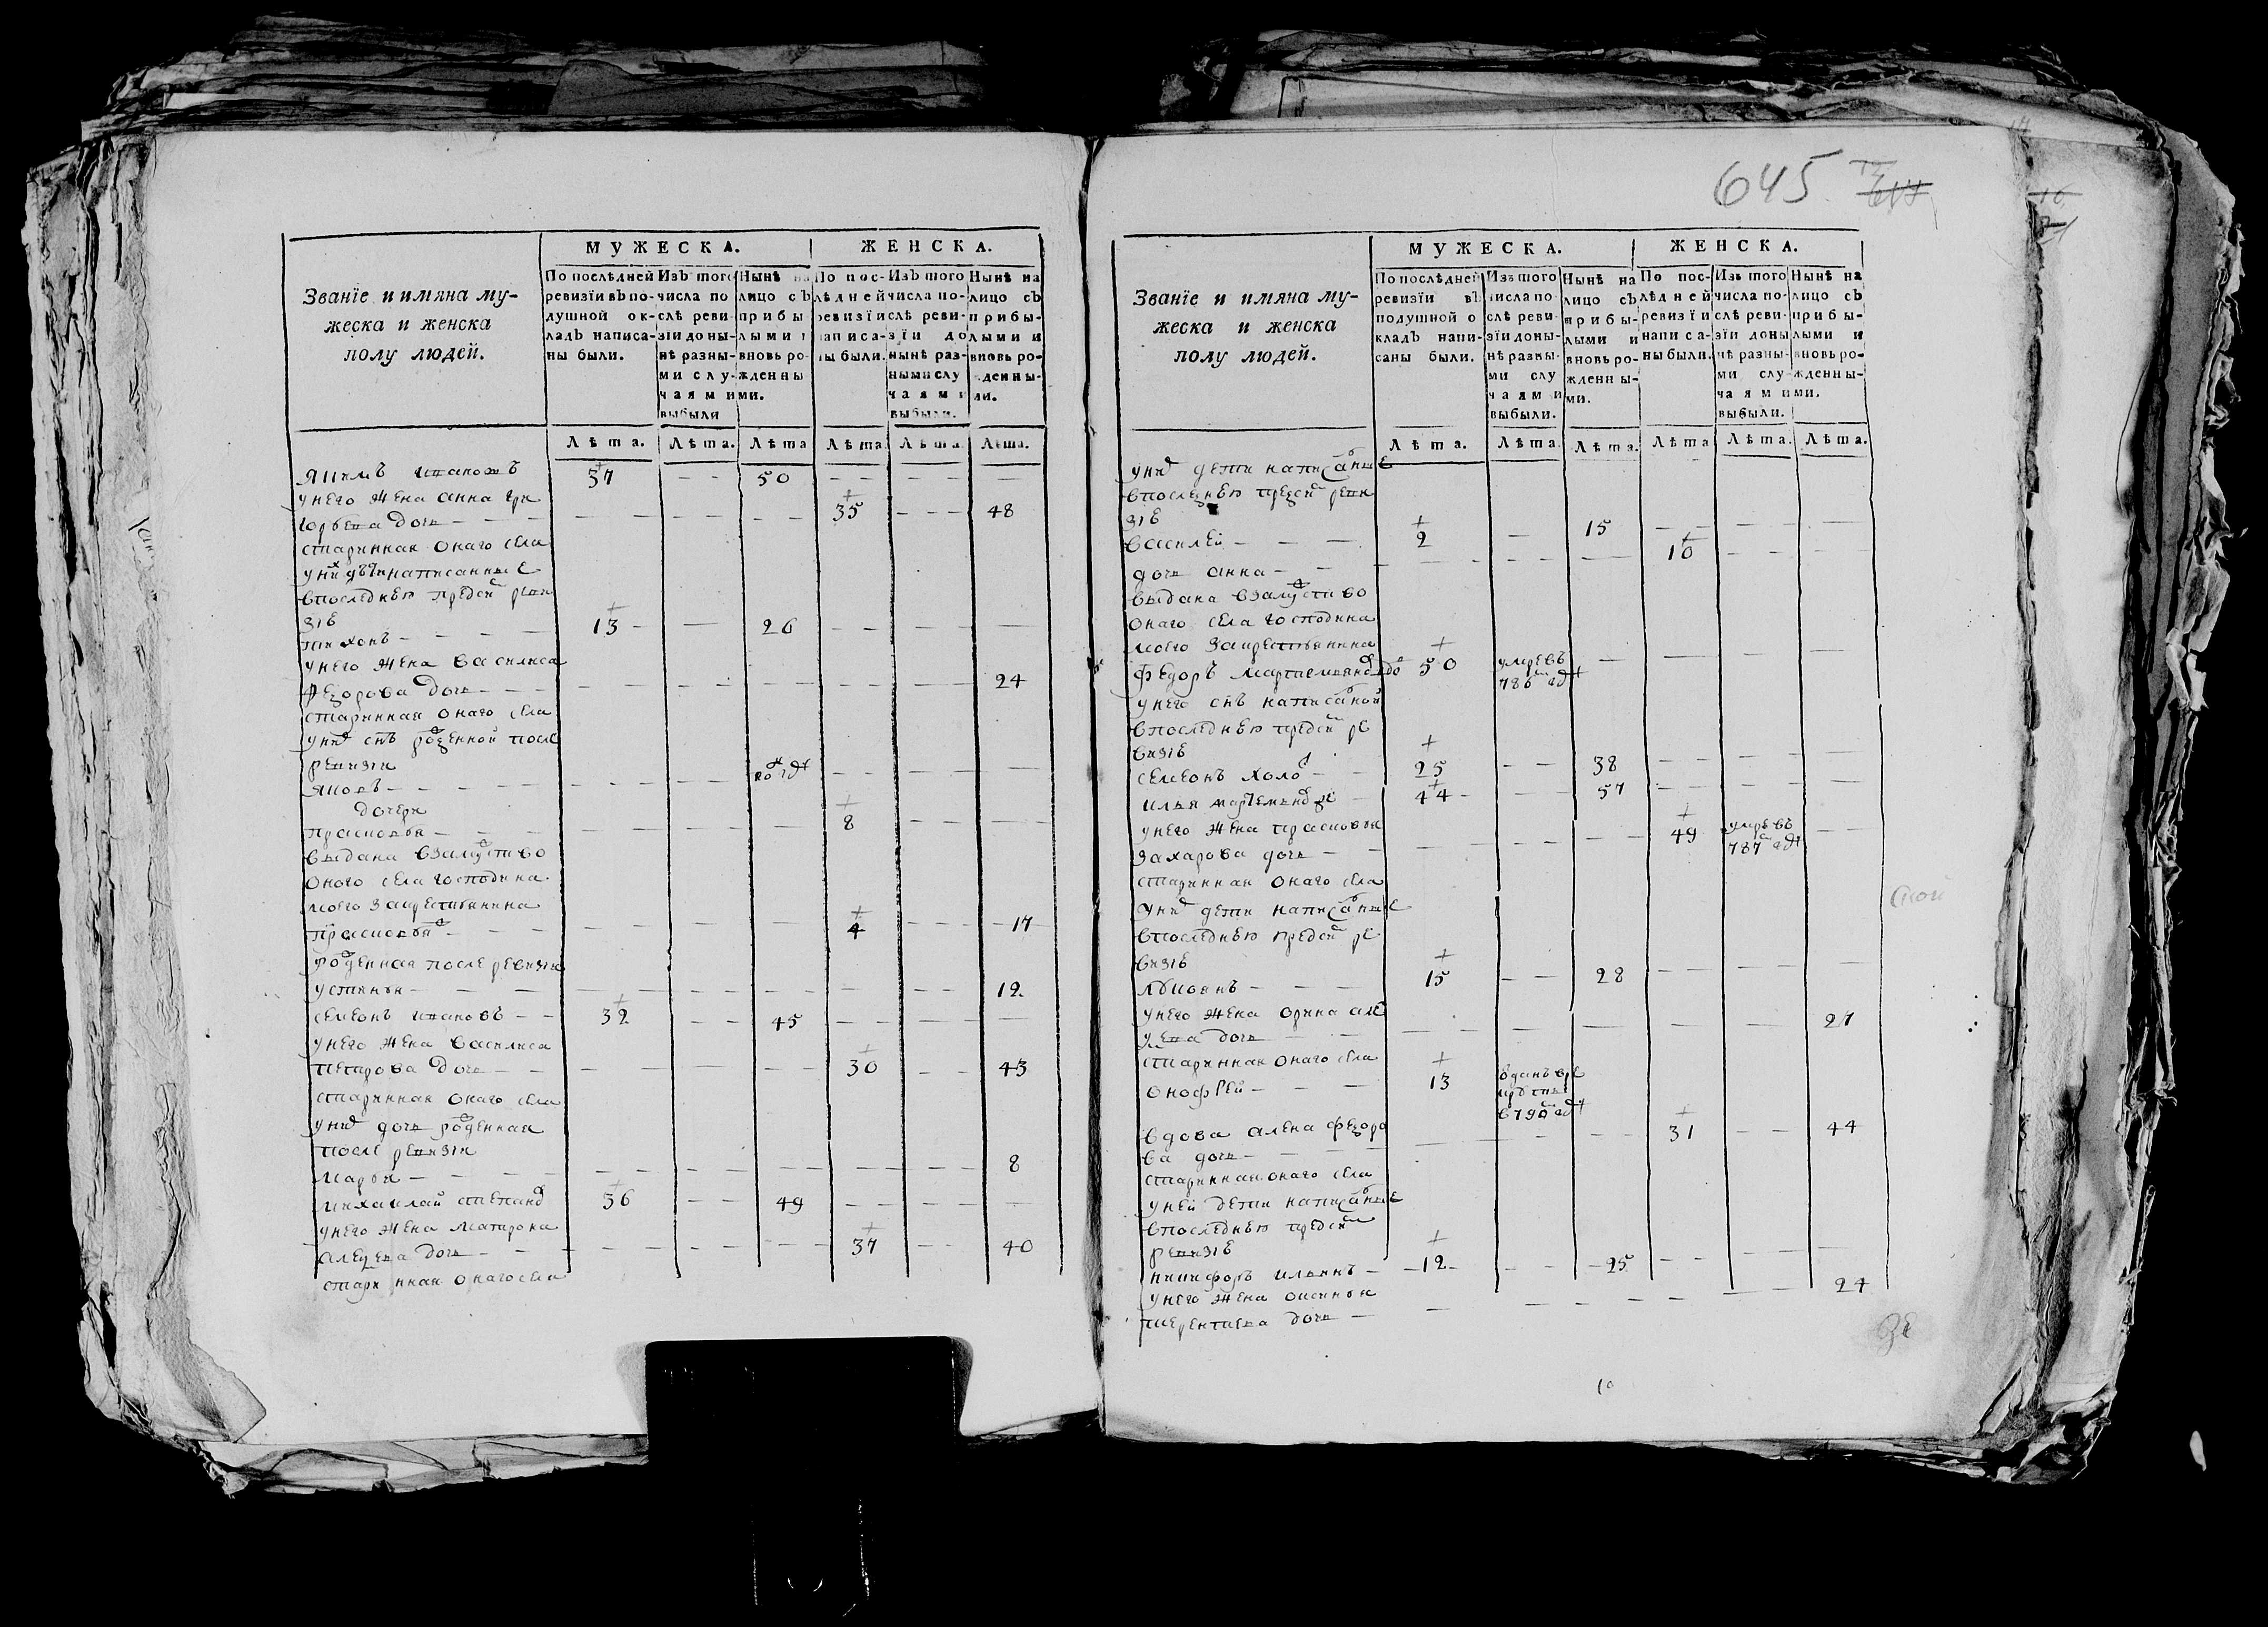 645
МУЖЕСКА. ЖЕНСКА.
Званїе и имяна му-
жеска и женска
полу людей.
По послѣдней ревизїи въ по-душной ок-ладъ написа-ны были.
Изъ того числа по-слѣ реви-зїи доны-нѣ разны-ми слу-чаями выбыли
Нынѣ на лицо съ прибы лыми и вновь ро-жденны ми.
По пос-лѣдней ревизїи написа-ны были.
Изъ того числа по-слѣ реви-зїи до нынѣ раз-ными слу чаями выбыли.
Нынѣ на лицо съ прибы-лыми и вновь ро-жденны-ми.
Лѣта. Лѣта. Лѣта Лѣта Лѣта. Лѣта.
якимъ ивановъ 37 50
унего жена анна гри
горьева дочь 35 48
стариннаяонаго села
уних дѣтинаписанные
впоследнею предсю реви
зіе
тихонъ 13 26
унего жена василиса
федорова дочь 24
стариннаяонаго села
уних снъ рожденной после
ревизи
яковъ
дочери
прасковья 8
выдана взамужство
оного села господина
моего закрестьянина
прасковья 4 17
рожденная после ревизи
устинья 12
семенъ ивановъ 32 45
унего жена василиса
петрова дочь 30 43
стариннаяонаго села
уних дочь рожденная
после ревизи
марья 8
михаилай степанов 36 49
унего жена матрона
алецева дочь 37 40
стариннаяонаго села
МУЖЕСКА. ЖЕНСКА.
Званїе и имяна му-
жеска и женска
полу людей.
По послѣдней ревизїи въ подушной о кладъ напи-саны были.
Изъ того числа по-слѣ реви-зїи доны-нѣ разны-ми слу чаями выбыли.
Нынѣ на лицо съ прибы-лыми и вновь ро-жденны-ми.
По пос-лѣдней ревизїи написа-ны были.
Изъ того числа по-слѣ реви-зїи доны нѣ разны-ми слу чаями выбыли.
Нынѣ на лицо съ прибы-лыми и вновь ро-жденны-ми.
Лѣта. Лѣта Лѣта. Лѣта Лѣта. Лѣта.
уних дети написаные
впоследнею предсю реви
зіе
василей 2 15
дочь анна 10
выдана взамужство
онаго села господина
моего закрестьянина
федоръ мартемьянов 50 умре въ 786м годе
унего снъ написаной
впоследнею предсю ре
визіе
семенъ холос 25 38
илья мартемьянов 44 57
унего жена прасковья
захарова дочь 49 умре въ 787м годе
стариннаяонаго села
уних дети написаные
впоследнею предсю ре
визіе
лукоянъ 15 28
унего жена орина алек
цева дочь 27
стариннаяонаго села
онофрей 13 отданъ в рекруты в 790м годе
вдова алена федоро
ва дочь 31 44
стариннаяонаго села
уней дети написаные
впоследнею предсю
ревизіе
никифоръ ильинъ 12 25
унего жена оксинья
терентиева дочь 24
10